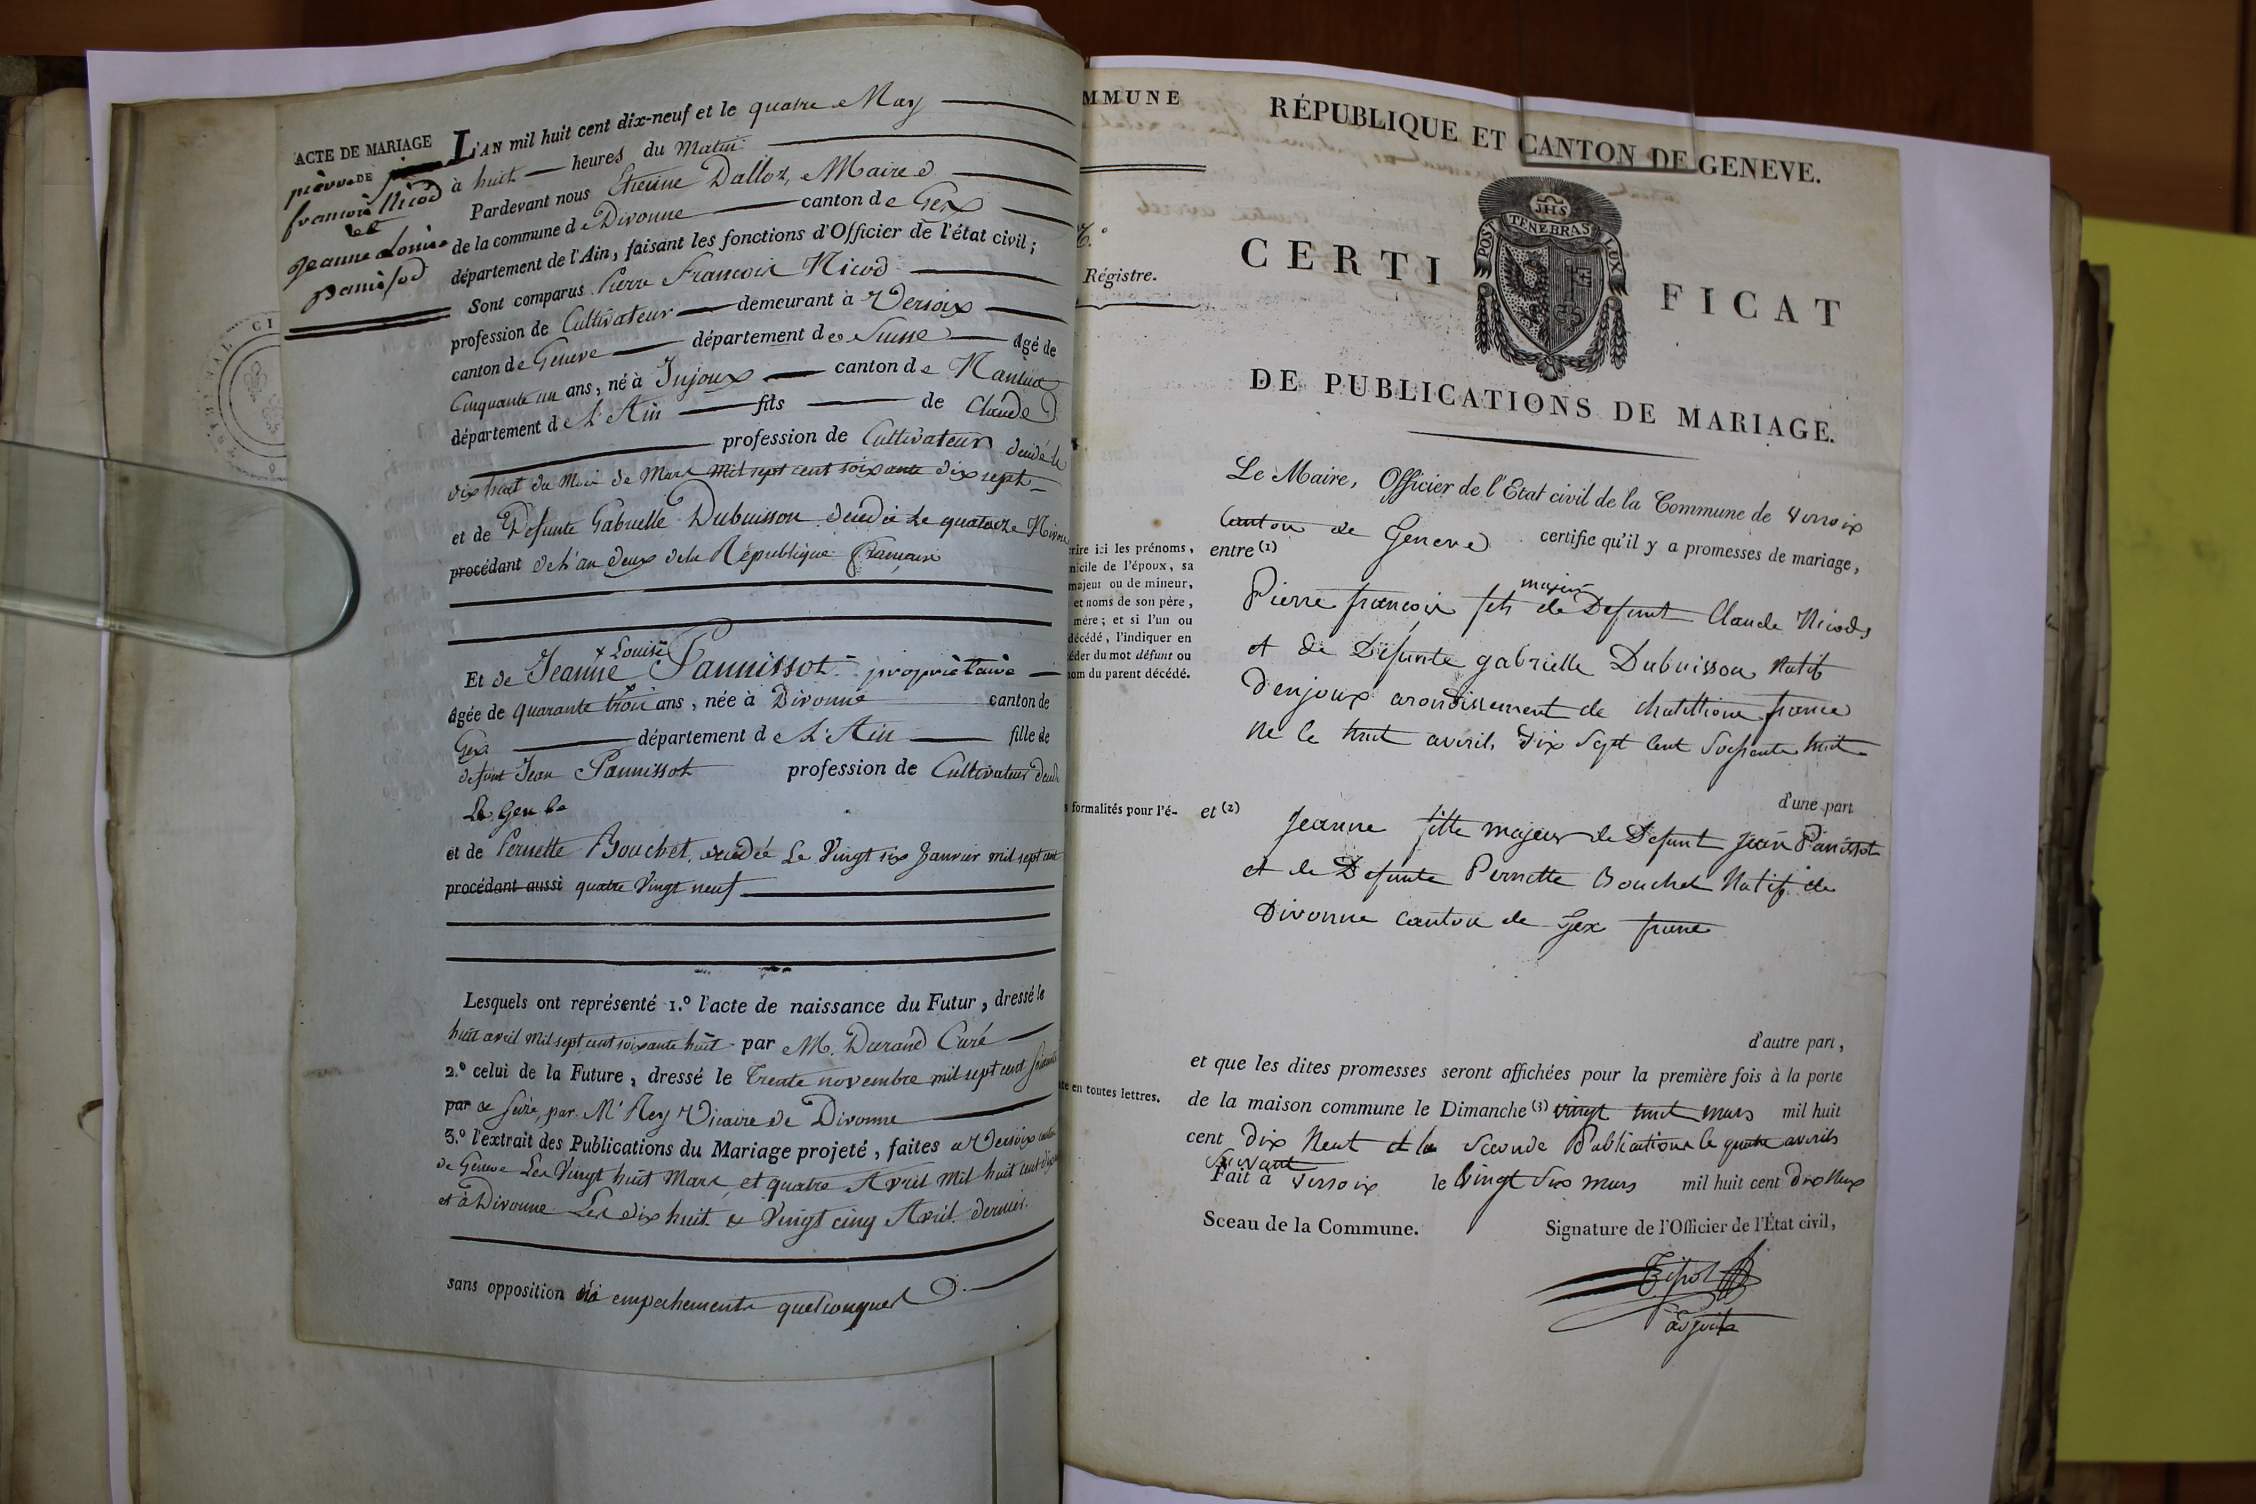 ACTE DE MARIAGE
DE
pierre
françois Nicod
et
jeanne Louise
panissod
L'AN mil huit cent dix-neuf et le quatre May
à huit heures du Matin
Pardevant nous Etienne Dalloz, Maire
de la commune de Divonne canton de Gex
département de l'Ain, faisant les fonctions d'Officier de l'état civil;
Sont comparus Pierre François Nicod
profession de Cultivateur demeurant à Versoix
canton de Geneve département de Suisse âgé de
Cinquante un ans, né à Injoux canton de Nantua
département de L'Ain fils de Claude
profession de Cultivateur décédé le
dix huit du Mois de Mars Mil sept cent soixante dix sept
et de Defunte Gabrielle Dubuisson décédée Le quatorze Nivose
procédant de L'an deux de la République française
Et de Jeanne + Louise Pannissot propriètaire
âgée de quarante trois ans, née à Divonne canton de
Gex département de L'Ain fille de
defunt Jean Pannissot profession de Cultivateur
et de Pernette Bouchet, décédée Le Vingt six Janvier mil sept cent
procédant aussi quatre Vingt neuf
Lesquels ont représenté 1.º l'acte de naissance du Futur, dressé le
huit avril mil sept cent soixante huit par M. Durand Curé
2.º celui de la Future, dressé le Trente novembre mil sept cent soixante
par & seize, par Mr Rey Vicaire de Divonne
3.º l'extrait des Publications du Mariage projeté, faites a Versoix canton
de Geneve Les Vingt huit Mars et quatre Avril Mil huit cent dix
et à Divonne Les dix huit & Vingt cinq Avril dernier.
sans opposition ni empechements quelconques
MMUNE
Régistre.
RÉPUBLIQUE ET CANTON DE GENEVE.
JHS
POST TENEBRAS LUX
CERTIFICAT
DE PUBLICATIONS DE MARIAGE.
Le Maire, Officier de l'Etat civil de la Commune de Versoix
Canton de Geneve certifie qu'il y a promesses de mariage,
entre (1)
rire ici les prénoms,
micile de l'époux, sa
majeur ou de mineur,
et noms de son père,
mère; et si l'un ou
décédé, l'indiquer en
éder du mot défunt ou
nom du parent décédé.
majeur
Pierre françois fils de Defunt Claude Nicod
et de Défunte gabrielle Dubuisson Natif
D'enjoux arondissement de chatillione france
Ne le huit avril, dix sept cent Soissente huit
d'une part
formalités pour l'é-
et (2)
Jeanne fille majeur de Defunt Jean Panissot
et de Defunte Pernette Bouchet Natif de
Divonne canton de Gex france
d'autre part,
et que les dites promesses seront affichées pour la première fois à la porte
te en toutes lettres.
de la maison commune le Dimanche (3) vingt huit mars mil huit
cent dix Neuf et la Seconde Publications le quatre avrils
Suivant
Fait à Versoix le Vingt Six mars mil huit cent dix Neuf
Sceau de la Commune. Signature de l'Officier de l'État civil,
adjoint